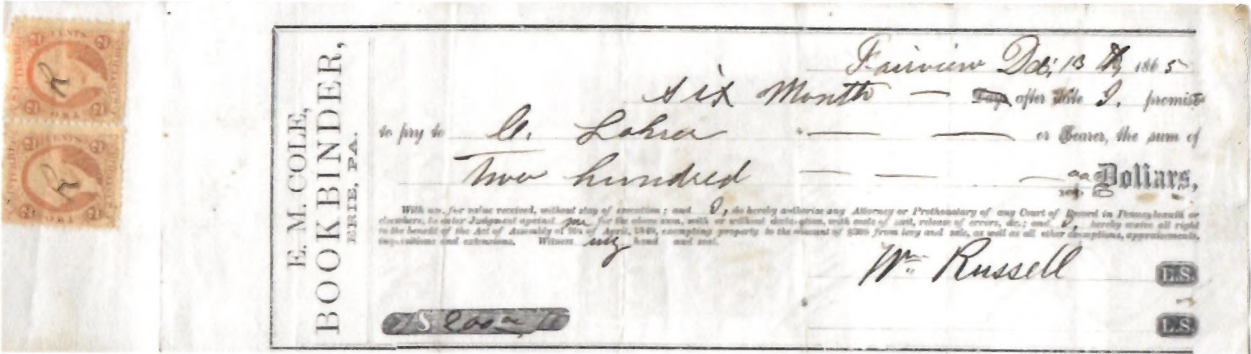 E. M. COLE,
BOOKBINDER,
ERIE, PA.
Fairview Dec 13 th, 1865
six Month — Days after date I, promise
to pay to C. — — or Bearer, the sum of
Two hundred — — — Dollars,
With int. for value received, without stay of execution; and I, do hereby authorize any Attorney or Prothonotary of any Court of Record in Pennsylvania or
elsewhere, to enter Judgment against me for the above sum, with or without declaration, with costs of suit, release of errors, &c.; and I, hereby waive all right
to the benefit of the Act of Assembly of 9th of April, 1849, exempting property to the amount of $300 from levy and sale, as well as all other exemptions, appraisements,
inquisitions and extensions. Witness my hand and seal.
Wm Russell L.S.
$ 200 L.S.